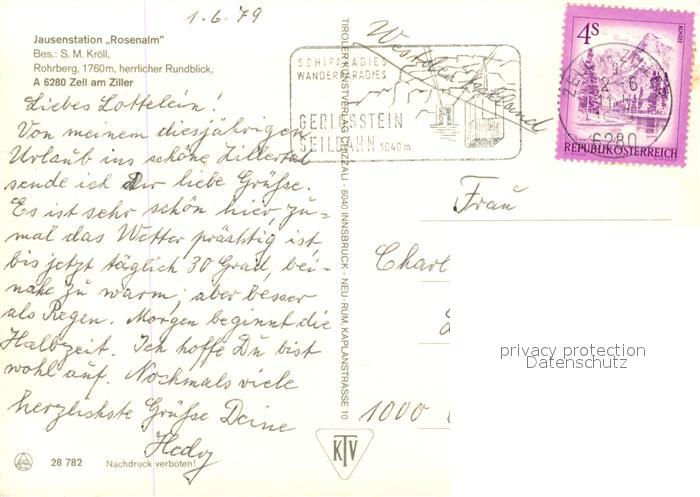 1.6.79
Jausenstation „Rosenalm"
Bes.: S. M. Kröll,
Rohrberg, 1760m, herrlicher Rundblick,
A 6280 Zell am Ziller
Liebes Lottelein!
Von meinem diesjährigen
Urlaub ins schöne Zillertal
sende ich Dir liebe Grüsse.
Es ist sehr schön hier, zu=
mal das Wetter prächtig ist,
bis jetzt täglich 30 Grad, bei-
nahe zu warm, aber besser
als Regen. Morgen beginnt die
Halbzeit. Ich hoffe Du bist
wohl auf. Nochmals viele
herzlichste Grüsse Deine
Hedy
28 782 Nachdruck verboten!
TIROLER KUNSTVERLAG CHIZZALI · 6040 INNSBRUCK - NEU-RUM, KAPLANSTRASSE 10
KTV
SCHIPARADIES
WANDERPARADIES
GERLOSSTEIN
SEILBAHN 1640m
4s
REPUBLIK ÖSTERREICH
6280
Frau
Charl
1000
privacy protection
Datenschutz